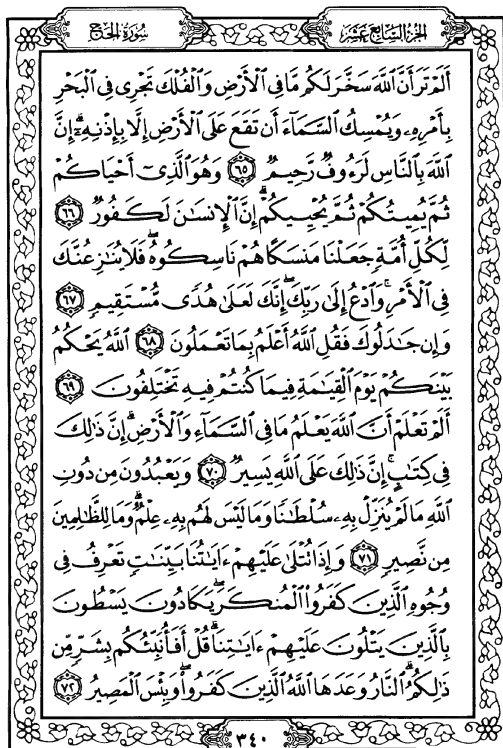 سُورَةُ الحَجّ
الجُزْءُ السَّابِعَ عَشَرَ
أَلَمۡ تَرَ أَنَّ ٱللَّهَ سَخَّرَ لَكُم مَّا فِي ٱلۡأَرۡضِ وَٱلۡفُلۡكَ تَجۡرِي فِي ٱلۡبَحۡرِ
بِأَمۡرِهِۦ وَيُمۡسِكُ ٱلسَّمَآءَ أَن تَقَعَ عَلَى ٱلۡأَرۡضِ إِلَّا بِإِذۡنِهِۦٓۚ إِنَّ
ٱللَّهَ بِٱلنَّاسِ لَرَءُوفٞ رَّحِيمٞ ٦٥ وَهُوَ ٱلَّذِيٓ أَحۡيَاكُمۡ
ثُمَّ يُمِيتُكُمۡ ثُمَّ يُحۡيِيكُمۡۗ إِنَّ ٱلۡإِنسَٰنَ لَكَفُورٞ ٦٦
لِّكُلِّ أُمَّةٖ جَعَلۡنَا مَنسَكًا هُمۡ نَاسِكُوهُۖ فَلَا يُنَٰزِعُنَّكَ
فِي ٱلۡأَمۡرِۚ وَٱدۡعُ إِلَىٰ رَبِّكَۖ إِنَّكَ لَعَلَىٰ هُدٗى مُّسۡتَقِيمٖ ٦٧
وَإِن جَٰدَلُوكَ فَقُلِ ٱللَّهُ أَعۡلَمُ بِمَا تَعۡمَلُونَ ٦٨ ٱللَّهُ يَحۡكُمُ
بَيۡنَكُمۡ يَوۡمَ ٱلۡقِيَٰمَةِ فِيمَا كُنتُمۡ فِيهِ تَخۡتَلِفُونَ ٦٩
أَلَمۡ تَعۡلَمۡ أَنَّ ٱللَّهَ يَعۡلَمُ مَا فِي ٱلسَّمَآءِ وَٱلۡأَرۡضِۚ إِنَّ ذَٰلِكَ
فِي كِتَٰبٍۚ إِنَّ ذَٰلِكَ عَلَى ٱللَّهِ يَسِيرٞ ٧٠ وَيَعۡبُدُونَ مِن دُونِ
ٱللَّهِ مَا لَمۡ يُنَزِّلۡ بِهِۦ سُلۡطَٰنٗا وَمَا لَيۡسَ لَهُم بِهِۦ عِلۡمٞۗ وَمَا لِلظَّٰلِمِينَ
مِن نَّصِيرٖ ٧١ وَإِذَا تُتۡلَىٰ عَلَيۡهِمۡ ءَايَٰتُنَا بَيِّنَٰتٖ تَعۡرِفُ فِي
وُجُوهِ ٱلَّذِينَ كَفَرُواْ ٱلۡمُنكَرَۖ يَكَادُونَ يَسۡطُونَ
بِٱلَّذِينَ يَتۡلُونَ عَلَيۡهِمۡ ءَايَٰتِنَاۗ قُلۡ أَفَأُنَبِّئُكُم بِشَرّٖ مِّن
ذَٰلِكُمُۚ ٱلنَّارُ وَعَدَهَا ٱللَّهُ ٱلَّذِينَ كَفَرُواْۖ وَبِئۡسَ ٱلۡمَصِيرُ ٧٢
٣٤٠